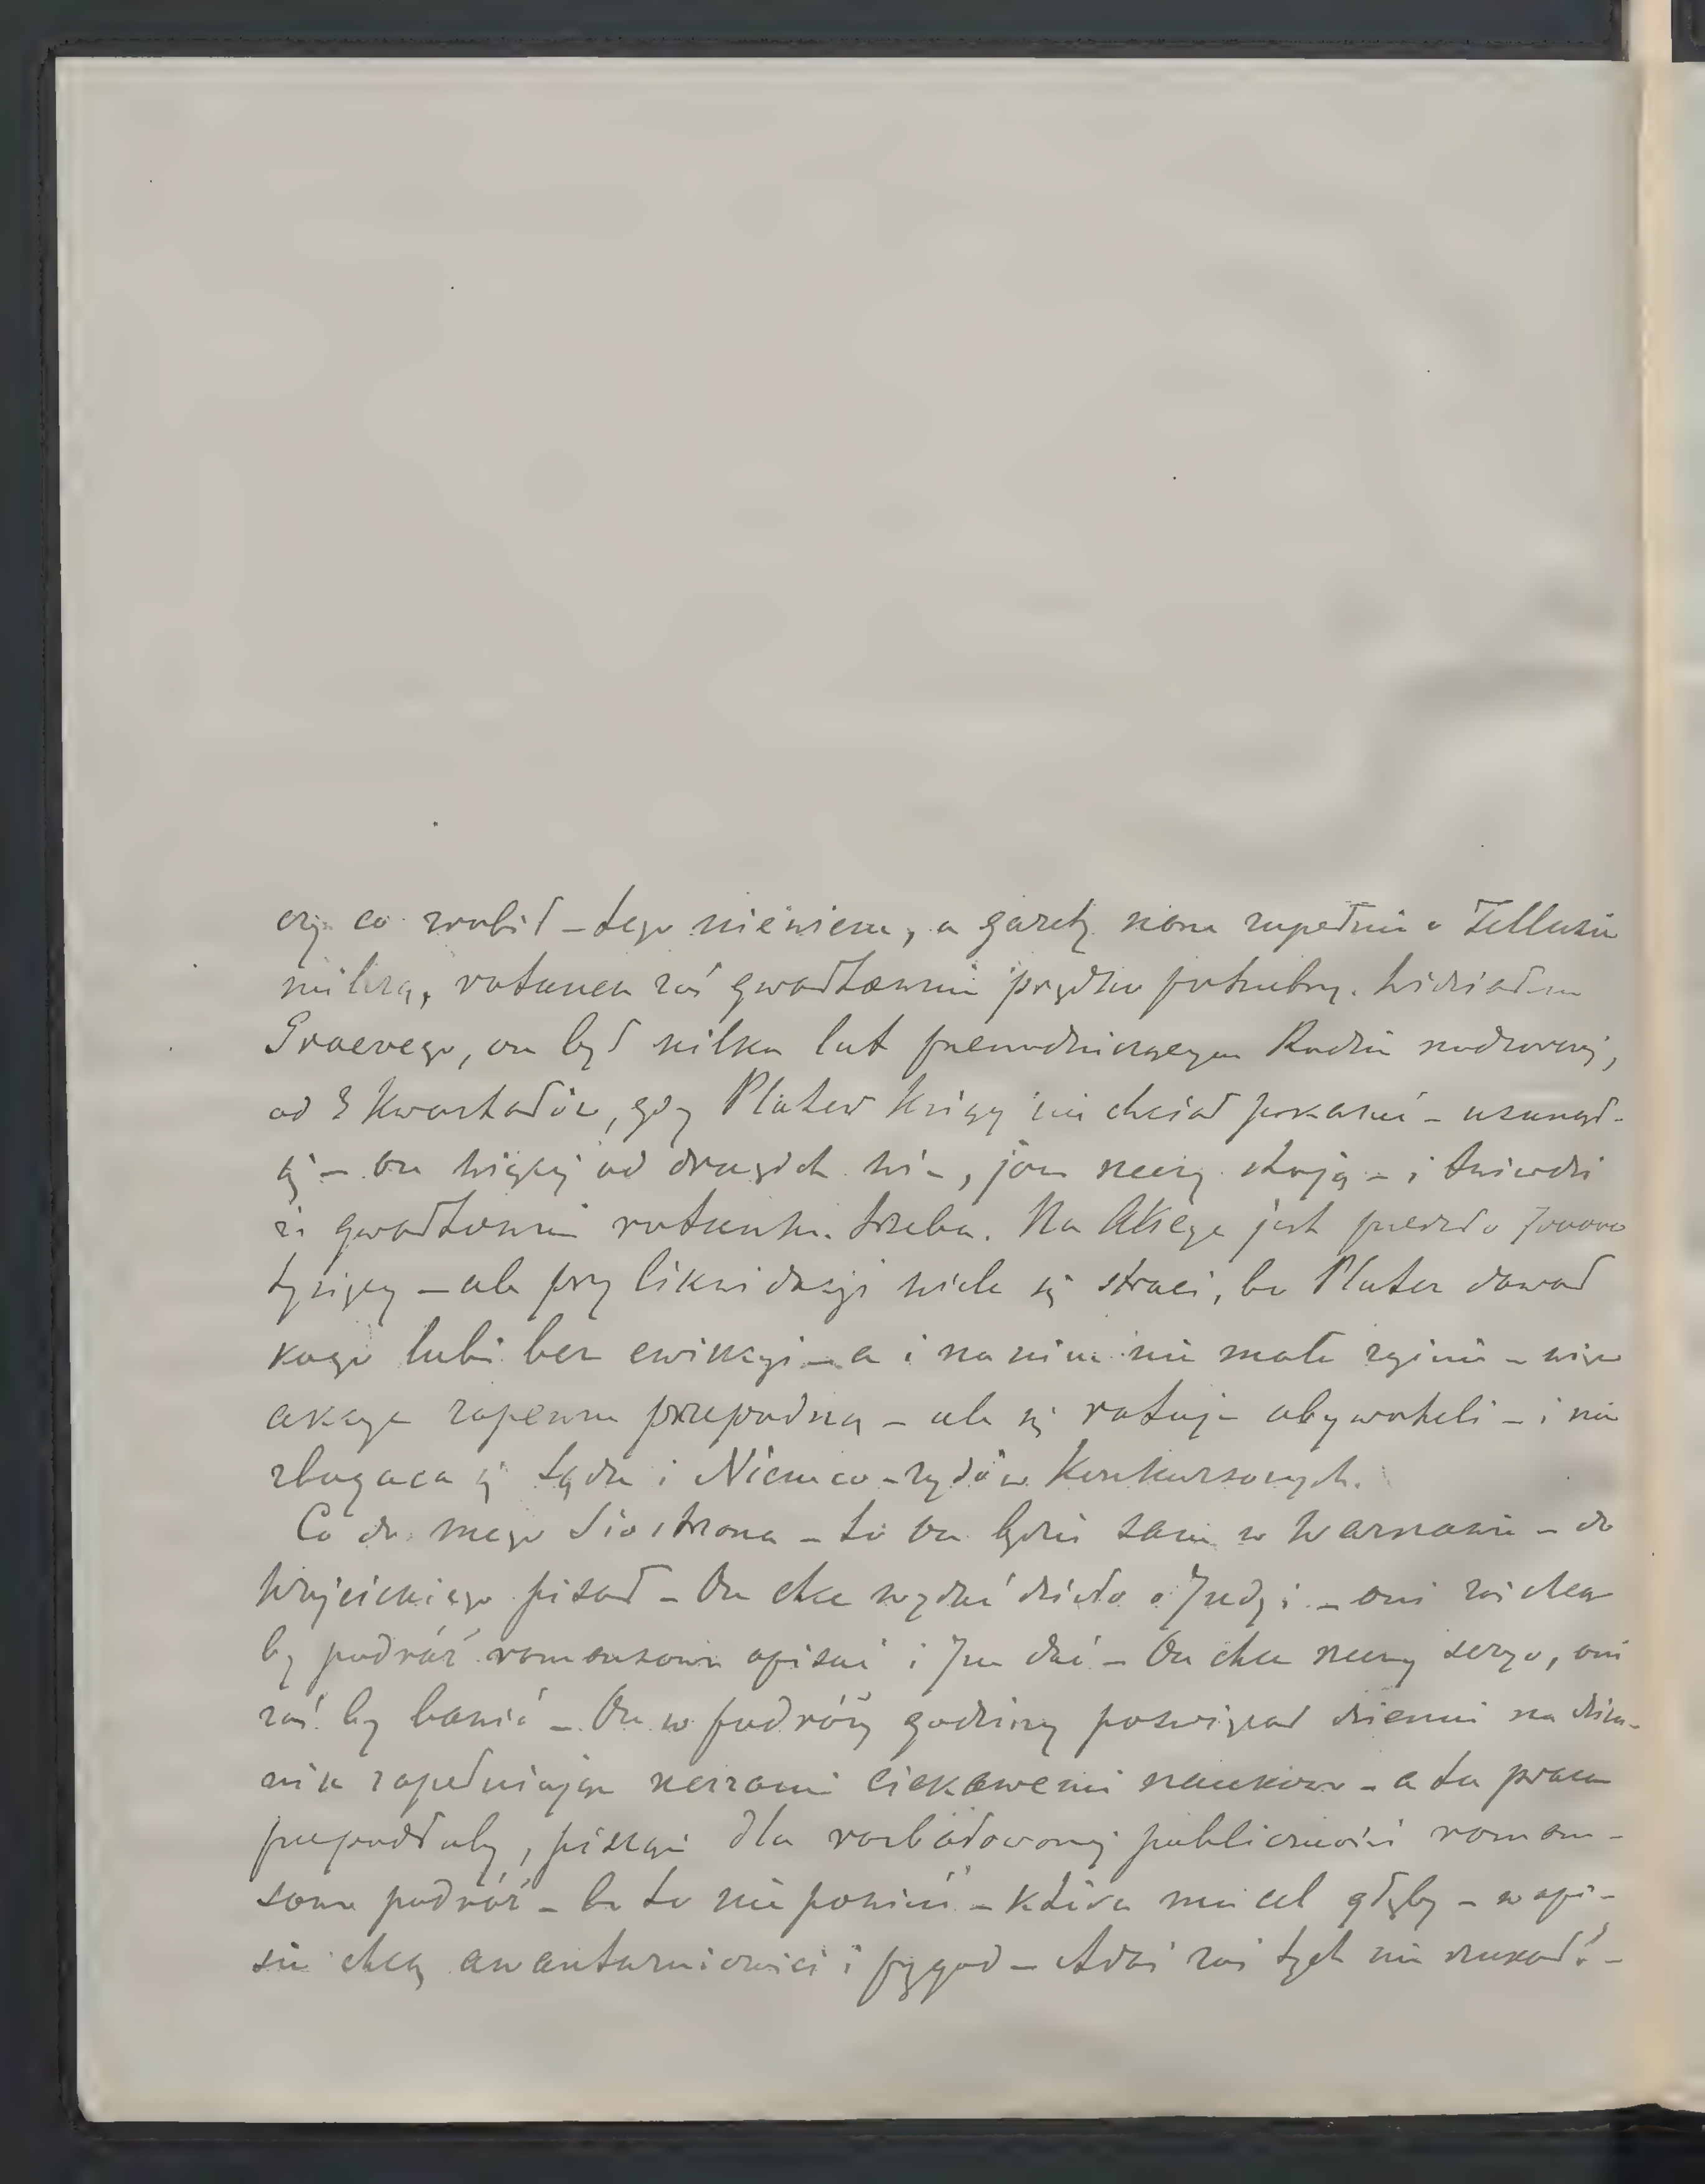 czy co zrobił – tego niewiem, a gazety nasze zupełnie o Tellusie
milczą, ratunek zaś gwałtownie prędko potrzebny. Widziałem
Graevego, on był kilka lat przewodniczącym Radzie nadzorczej,
od 3 Kwartałów, gdy Plater Księgi nie chciał pokazać – usunął
się – on więcej od drugich wie, jak rzeczy stoją – i twierdzi
że gwałtownie ratunku trzeba. Na Akcye jest przeszło
tysięcy – ale przy likwidacji wiele się straci, bo Plater dawał
kogo lubi bez ewikcyi – a i na nim nie mało zginie – więc
akcye zapewne przepadną – ale się ratuje obywateli – i nie
zbogaca się Sądu i Niemco-żydów Konkursowych.
Co do mego Siostrzana – to on będzie sam w Warszawie – do
Wójcickiego pisał – On chce wydać dzieło o Indyi – oni zaś chcą
by podróż romansową opisać i Im dać – On chce rzeczy seryo, oni
zaś by bawić – On w podróży godziny poświęcał dziennie na dzien-
nik zapełniając rzeczami ciekawemi naukowo – a ta praca
przepadłaby, pisząc dla rozbałowanej publiczności roman-
sową podróż – bo to nie powieść – która ma cel głęby – w opi-
sie chcą awanturniczości i przygód – Adaś zaś tych nie szukał –